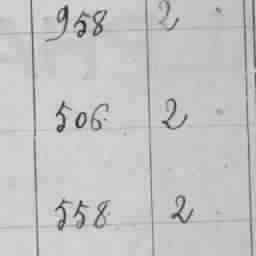 958 2
506 2
558 2